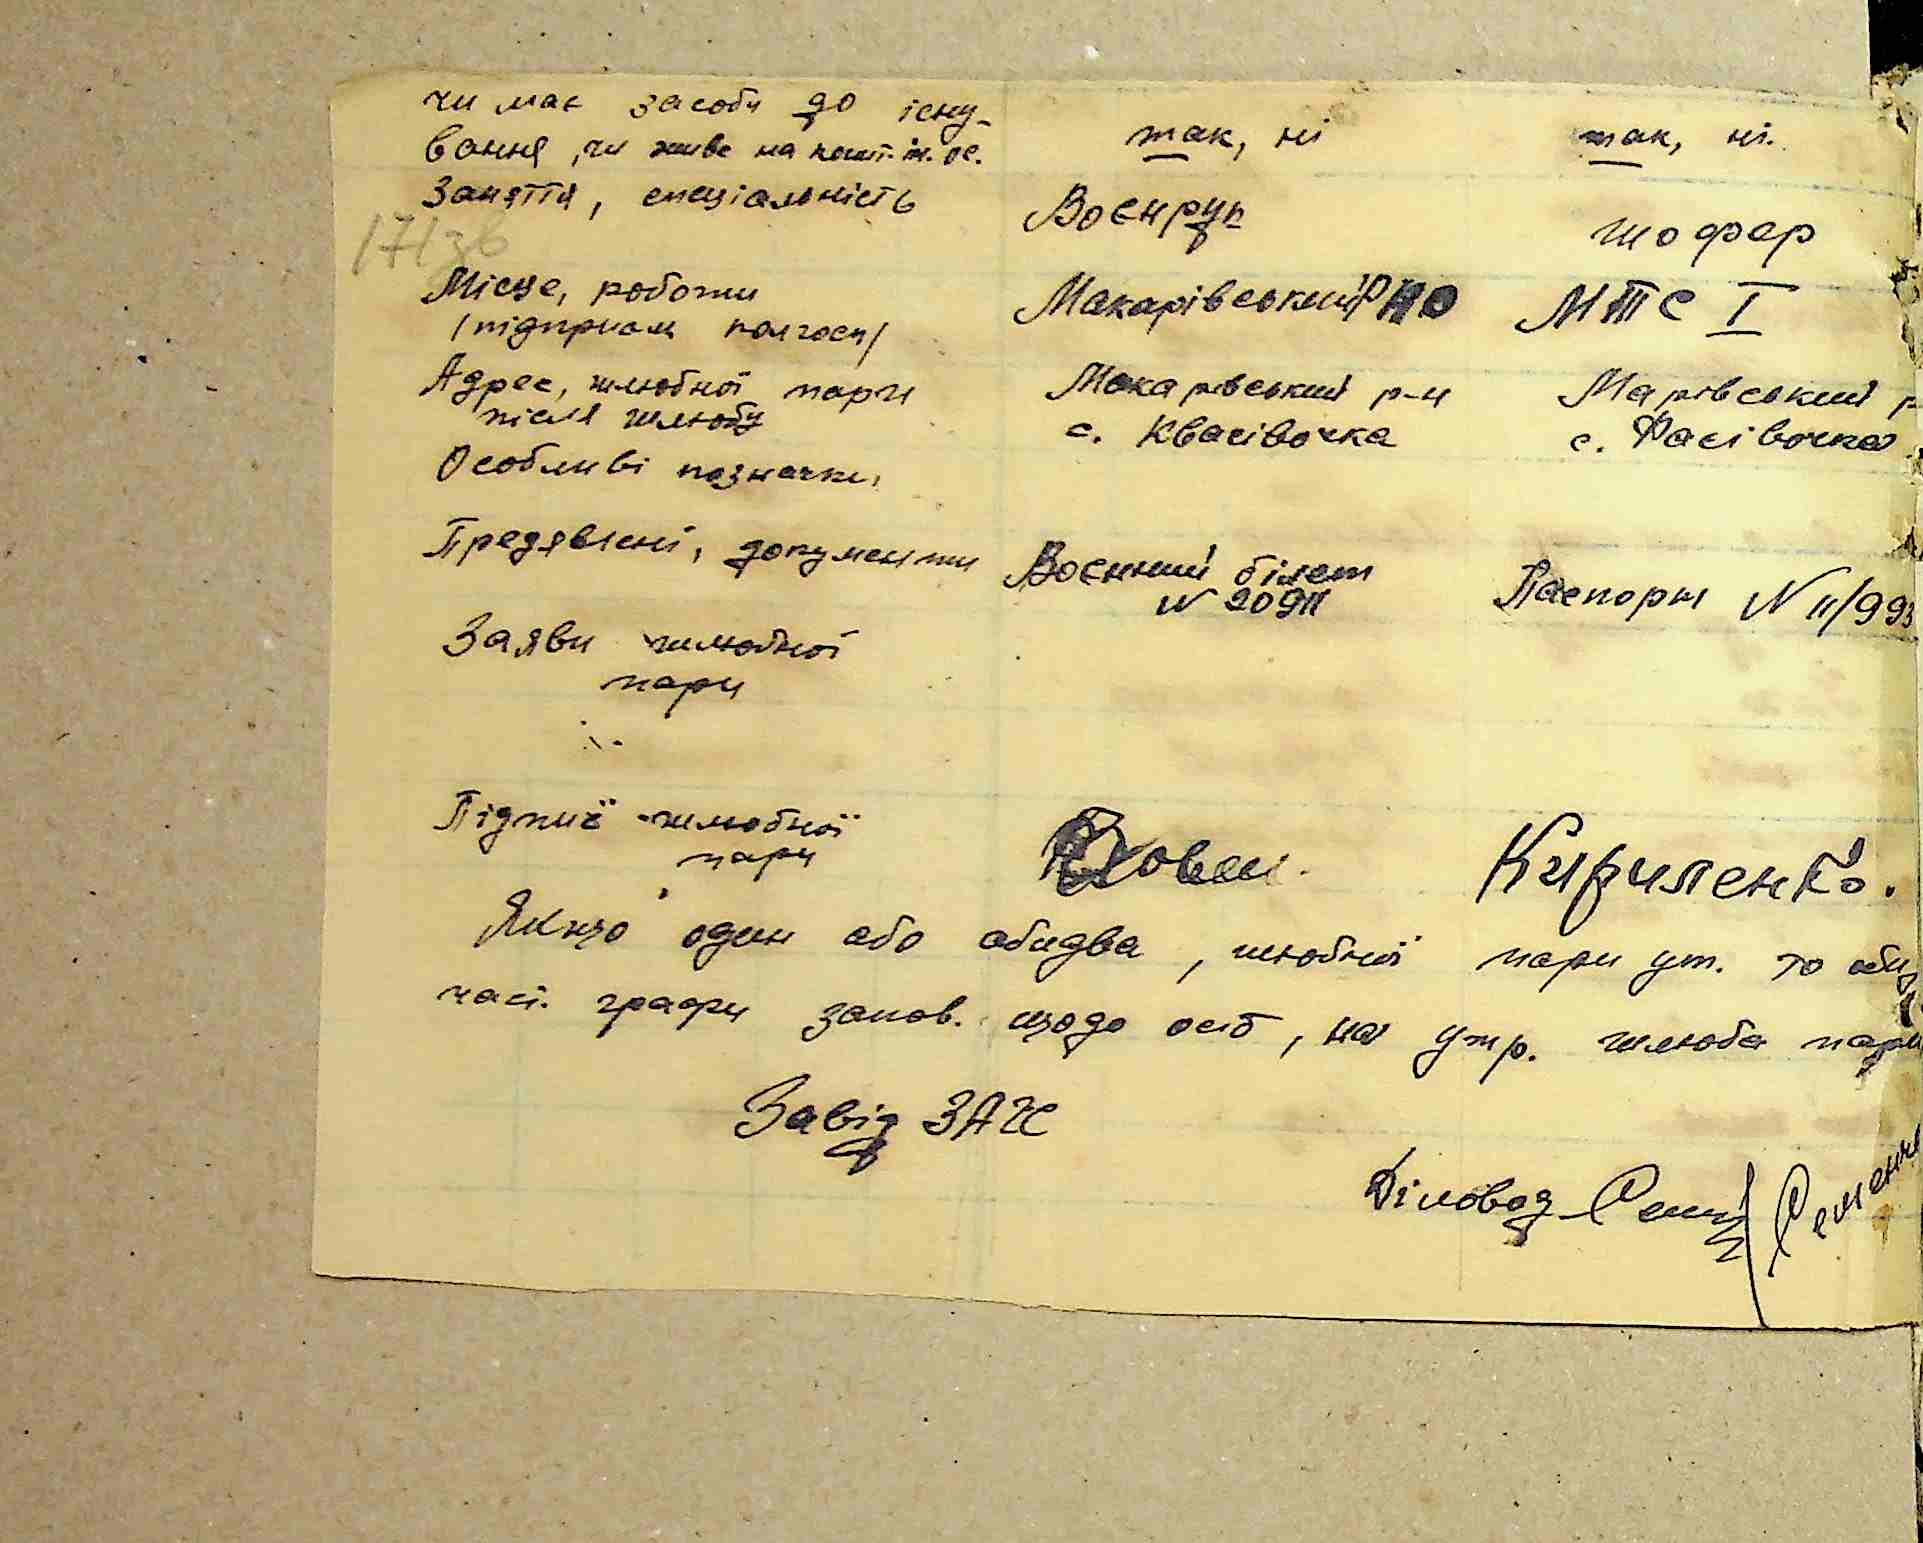 чи має засоби до існу- так, ні так, ні.
вання, чи живе на кошт. ін. ос.
Заняття, спеціальність Воєнрук шофер
171зв
Місце, роботи Макарівський РНО МТС I
/підприєм колгосп/
Адрес, шлюбної пари Макарівський р-н Марівський р-
після шлюбу с. Квасівочка с. Фасівочка
Особливі позначки,
Предявлені, документи Воєнний білет
№ 20911 Паспорт № 11/993
Заяви шлюбної
пари
Підпис шлюбної Кириленко.
пари
Якщо один або обидва, шлюбної пари ут. то
част. графи запов. щодо осіб, на утр. шлюба пари
Завід ЗАГС
Діловод